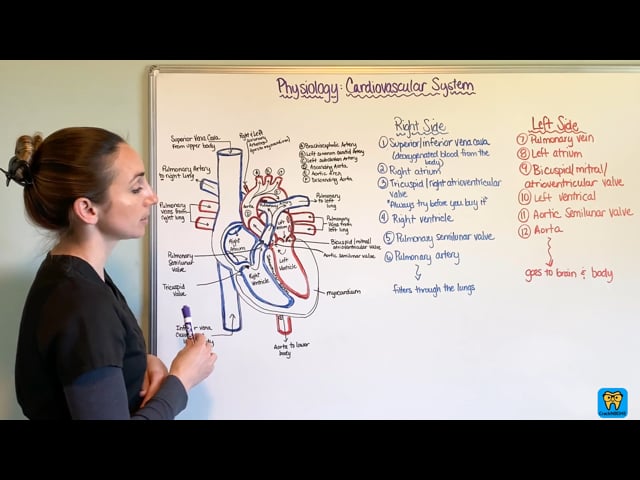 Physiology: Cardiovascular System
Superior Vena Cava
from upper body
Right & Left
Pulmonary Artery
to right lung
Pulmonary
veins from
right lung
Pulmonary
Semilunar
valve
Tricuspid
Valve
vena
A Brachiocephalic Artery
Left common carotid Artery
Left subclavian Artery
Ascending Aorta
Aortic Arch
Descending Aorta
Pulmonary
to left
lung
Pulmonary
Veins from
left lung
Bicuspid/mitral/
atrioventricular valve
Aortic semilunar valve
myocardium
Right
Atrium
Left
Atrium
Right
Ventricle
Left
Ventricle
Aorta to lower
body
Right Side
1 Superior/inferior vena cava
(deoxygenated blood from the
body)
2 Right atrium
3 Tricuspid/right atrioventricular
valve
*Always try before you buy it
4 Right ventricle
5 Pulmonary semilunar valve
6 Pulmonary artery
filters through the lungs
Left Side
7 Pulmonary vein
8 Left atrium
9 Bicuspid/mitral/
atrioventricular valve
10 Left ventrical
11 Aortic Semilunar valve
12 Aorta
goes to brain & body